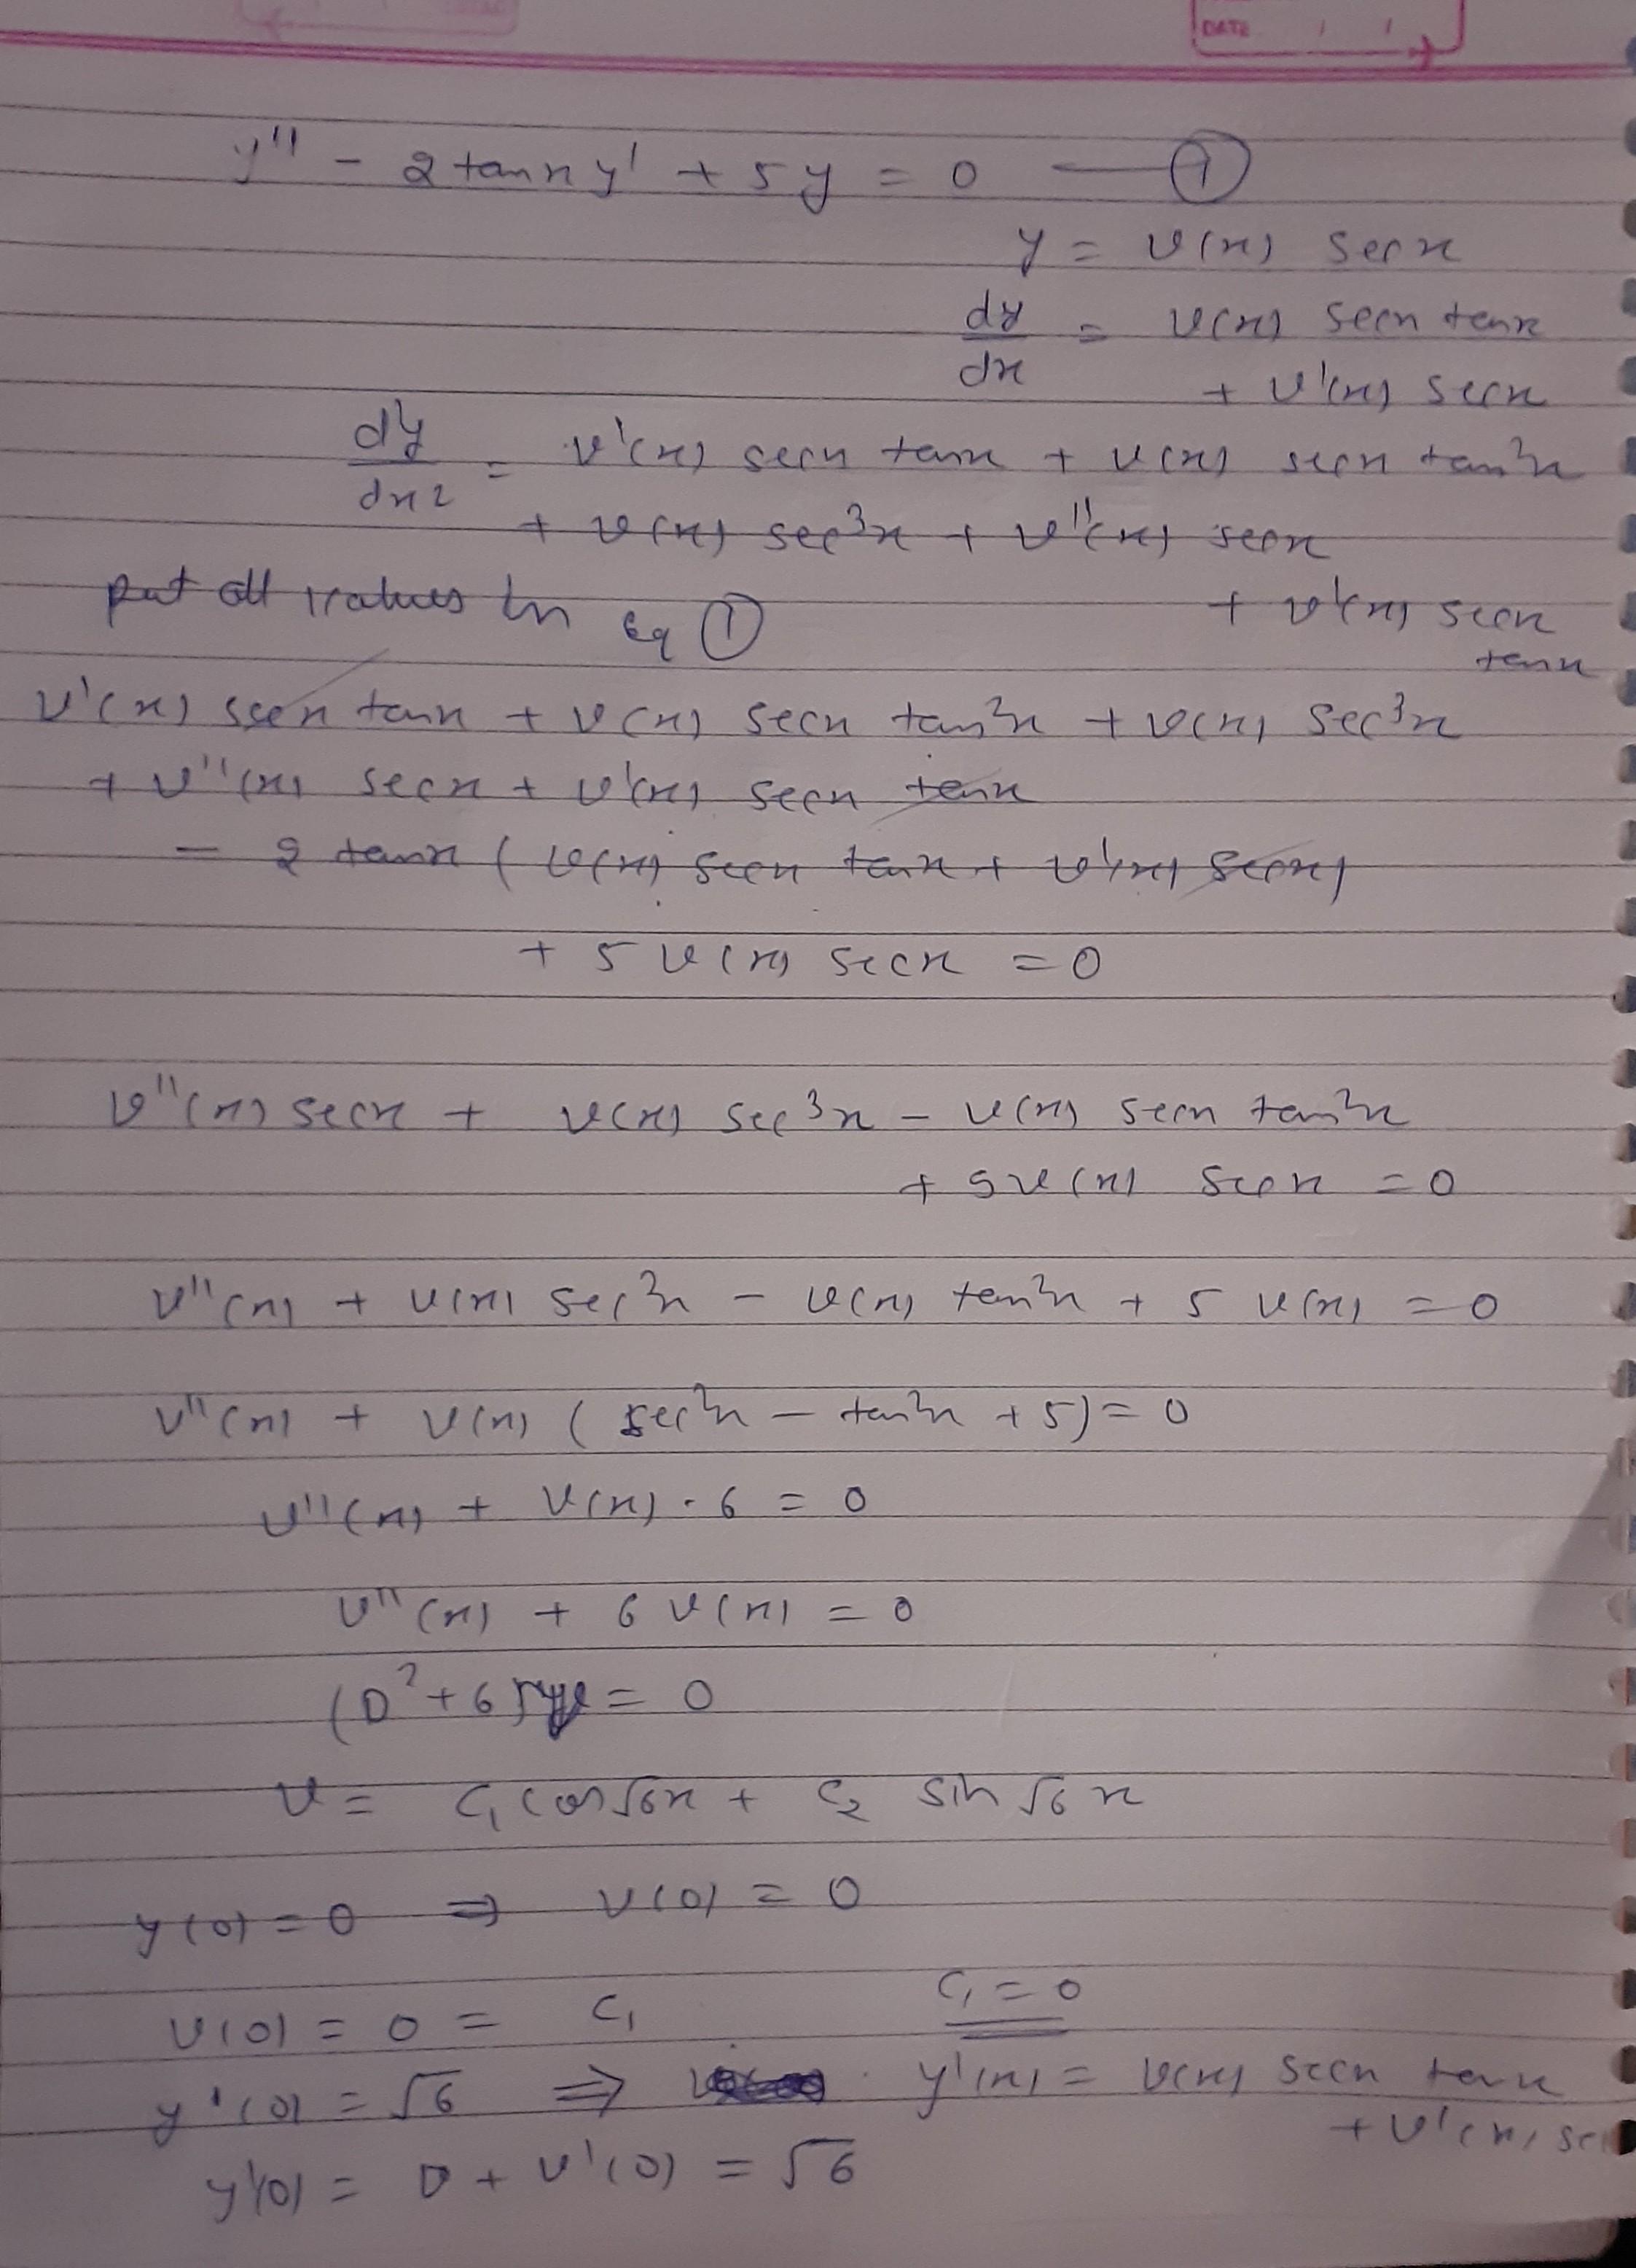 DATE
y'' - 2 tanx y' + 5y = 0 — ①
y = v(x) secx
dy/dx = v(x) secx tanx
+ v'(x) secx
dy/dx2 = v'(x) secx tanx + v(x) secx tan²x
+ v(x) sec³x + v''(x) secx
+ v'(x) secx tanx
put all values in Eq ①
v'(x) secx tanx + v(x) secx tan²x + v(x) sec³x
+ v''(x) secx + v'(x) secx tanx
- 2 tanx ( v(x) secx tanx + v'(x) secx)
+ 5 v(x) secx = 0
v''(x) secx + v(x) sec³x - v(x) secx tan²x
+ 5v(x) secx = 0
v''(x) + v(x) sec²x - v(x) tan²x + 5 v(x) = 0
v''(x) + v(x) ( sec²x - tan²x + 5) = 0
v''(x) + v(x) · 6 = 0
v''(x) + 6 v(x) = 0
(D² + 6) = 0
v = C₁ cos√6x + C₂ sin √6 x
y(0) = 0 ⇒ v(0) = 0
v(0) = 0 = C₁ C₁ = 0
y'(0) = √6 ⇒ y'(x) = v(x) secx tanx
+ v'(x) se
y'(0) = 0 + v'(0) = √6